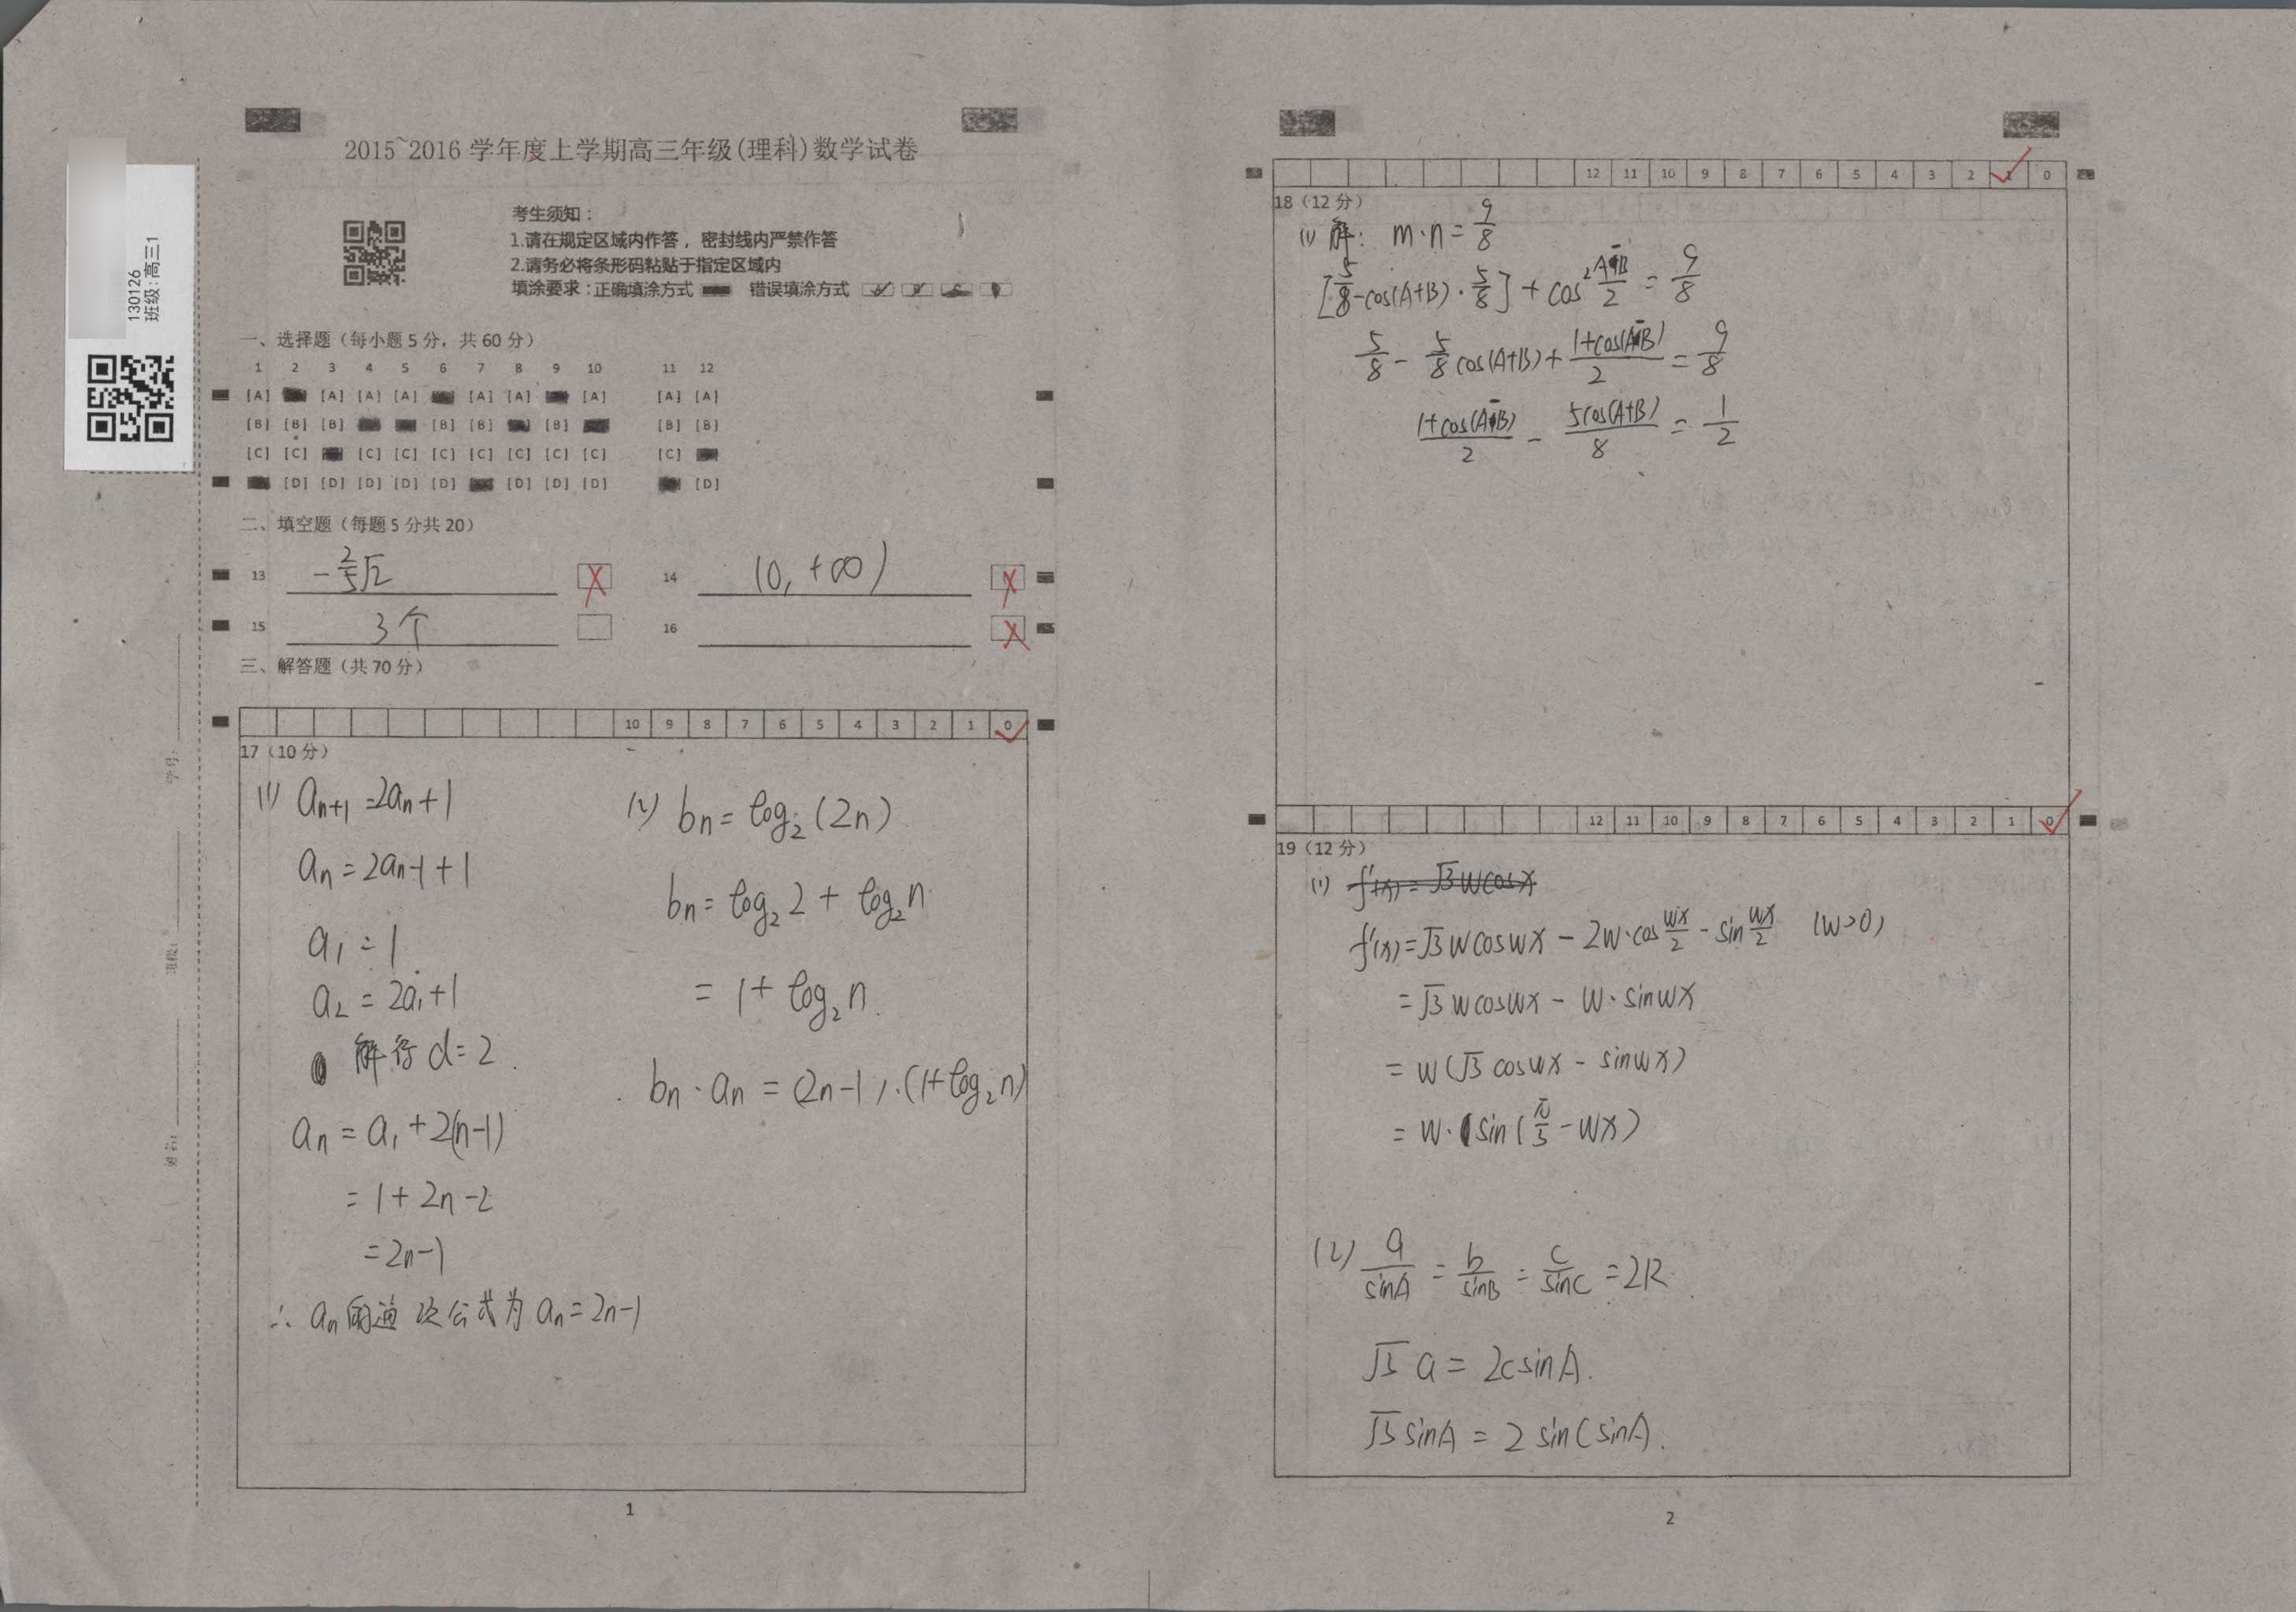 2015~2016 学年度上学期高三年级(理科)数学试卷
130126
班级:高三1
考生须知：
1.请在规定区域内作答，密封线内严禁作答
2.请务必将条形码粘贴于指定区域内
填涂要求：正确填涂方式 错误填涂方式
一、选择题（每小题5分，共60分）
1 2 3 4 5 6 7 8 9 10 11 12
[A] [A] [A] [A] [A] [A] [A] [A] [A]
[B] [B] [B] [B] [B] [B] [B] [B]
[C] [C] [C] [C] [C] [C] [C] [C] [C] [C]
[D] [D] [D] [D] [D] [D] [D] [D] [D]
二、填空题（每题5分共20）
13 -2/5√2 14 (0, +∞)
15 3个 16
三、解答题（共70分）
10 9 8 7 6 5 4 3 2 1 0
17（10分）
(1) aₙ₊₁=2aₙ+1
aₙ=2aₙ-1+1
a₁=1
a₂=2a₁+1
解得 d=2.
aₙ=a₁+2(n-1)
=1+2n-2
=2n-1
∴ aₙ的通项公式为 aₙ=2n-1
(2) bₙ=log₂(2n)
bₙ=log₂2+log₂n
=1+log₂n.
bₙ·aₙ=(2n-1)·(1+log₂n)
学号:
班级:
姓名:
1
12 11 10 9 8 7 6 5 4 3 2 1 0
18（12分）
(1) 解: m·n=9/8
[5/8-cos(A+B)·5/8]+cos²(A-B)/2=9/8
5/8-5/8cos(A+B)+(1+cos(A-B))/2=9/8
(1+cos(A-B))/2-5cos(A+B)/8=1/2
12 11 10 9 8 7 6 5 4 3 2 1 0
19（12分）
(1) f'(x)=√3wcosx
f'(x)=√3wcoswx-2w·cos wx/2-sin wx/2 (w>0)
=√3wcoswx-w·sinwx
=w(√3coswx-sinwx)
=w·sin(π/3-wx)
(2) a/sinA=b/sinB=c/sinC=2R.
√3a=2csinA.
√3sinA=2sinCsinA.
2